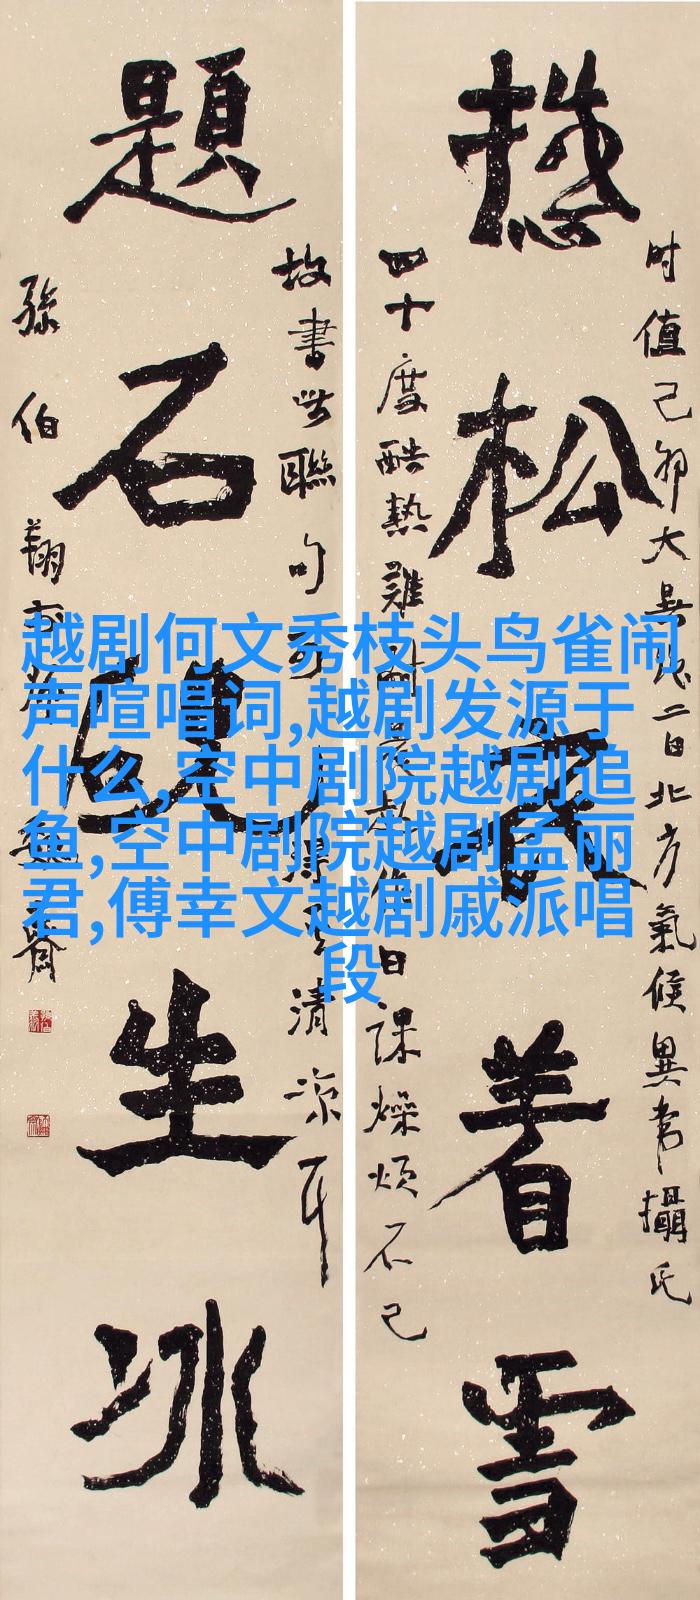 憩松衣着雪
时值己卯大暑民二日北方氣候異常攝氏
四十度酷熱難耐
日課燥煩不已
題石硯生冰
故書此聯句
清凉耳
孫伯翔
越剧何文秀枝头鸟雀闹
声喧唱词,越剧发源于
什么,空中剧院越剧追
鱼,空中剧院越剧孟丽
君,傅幸文越剧戚派唱
段